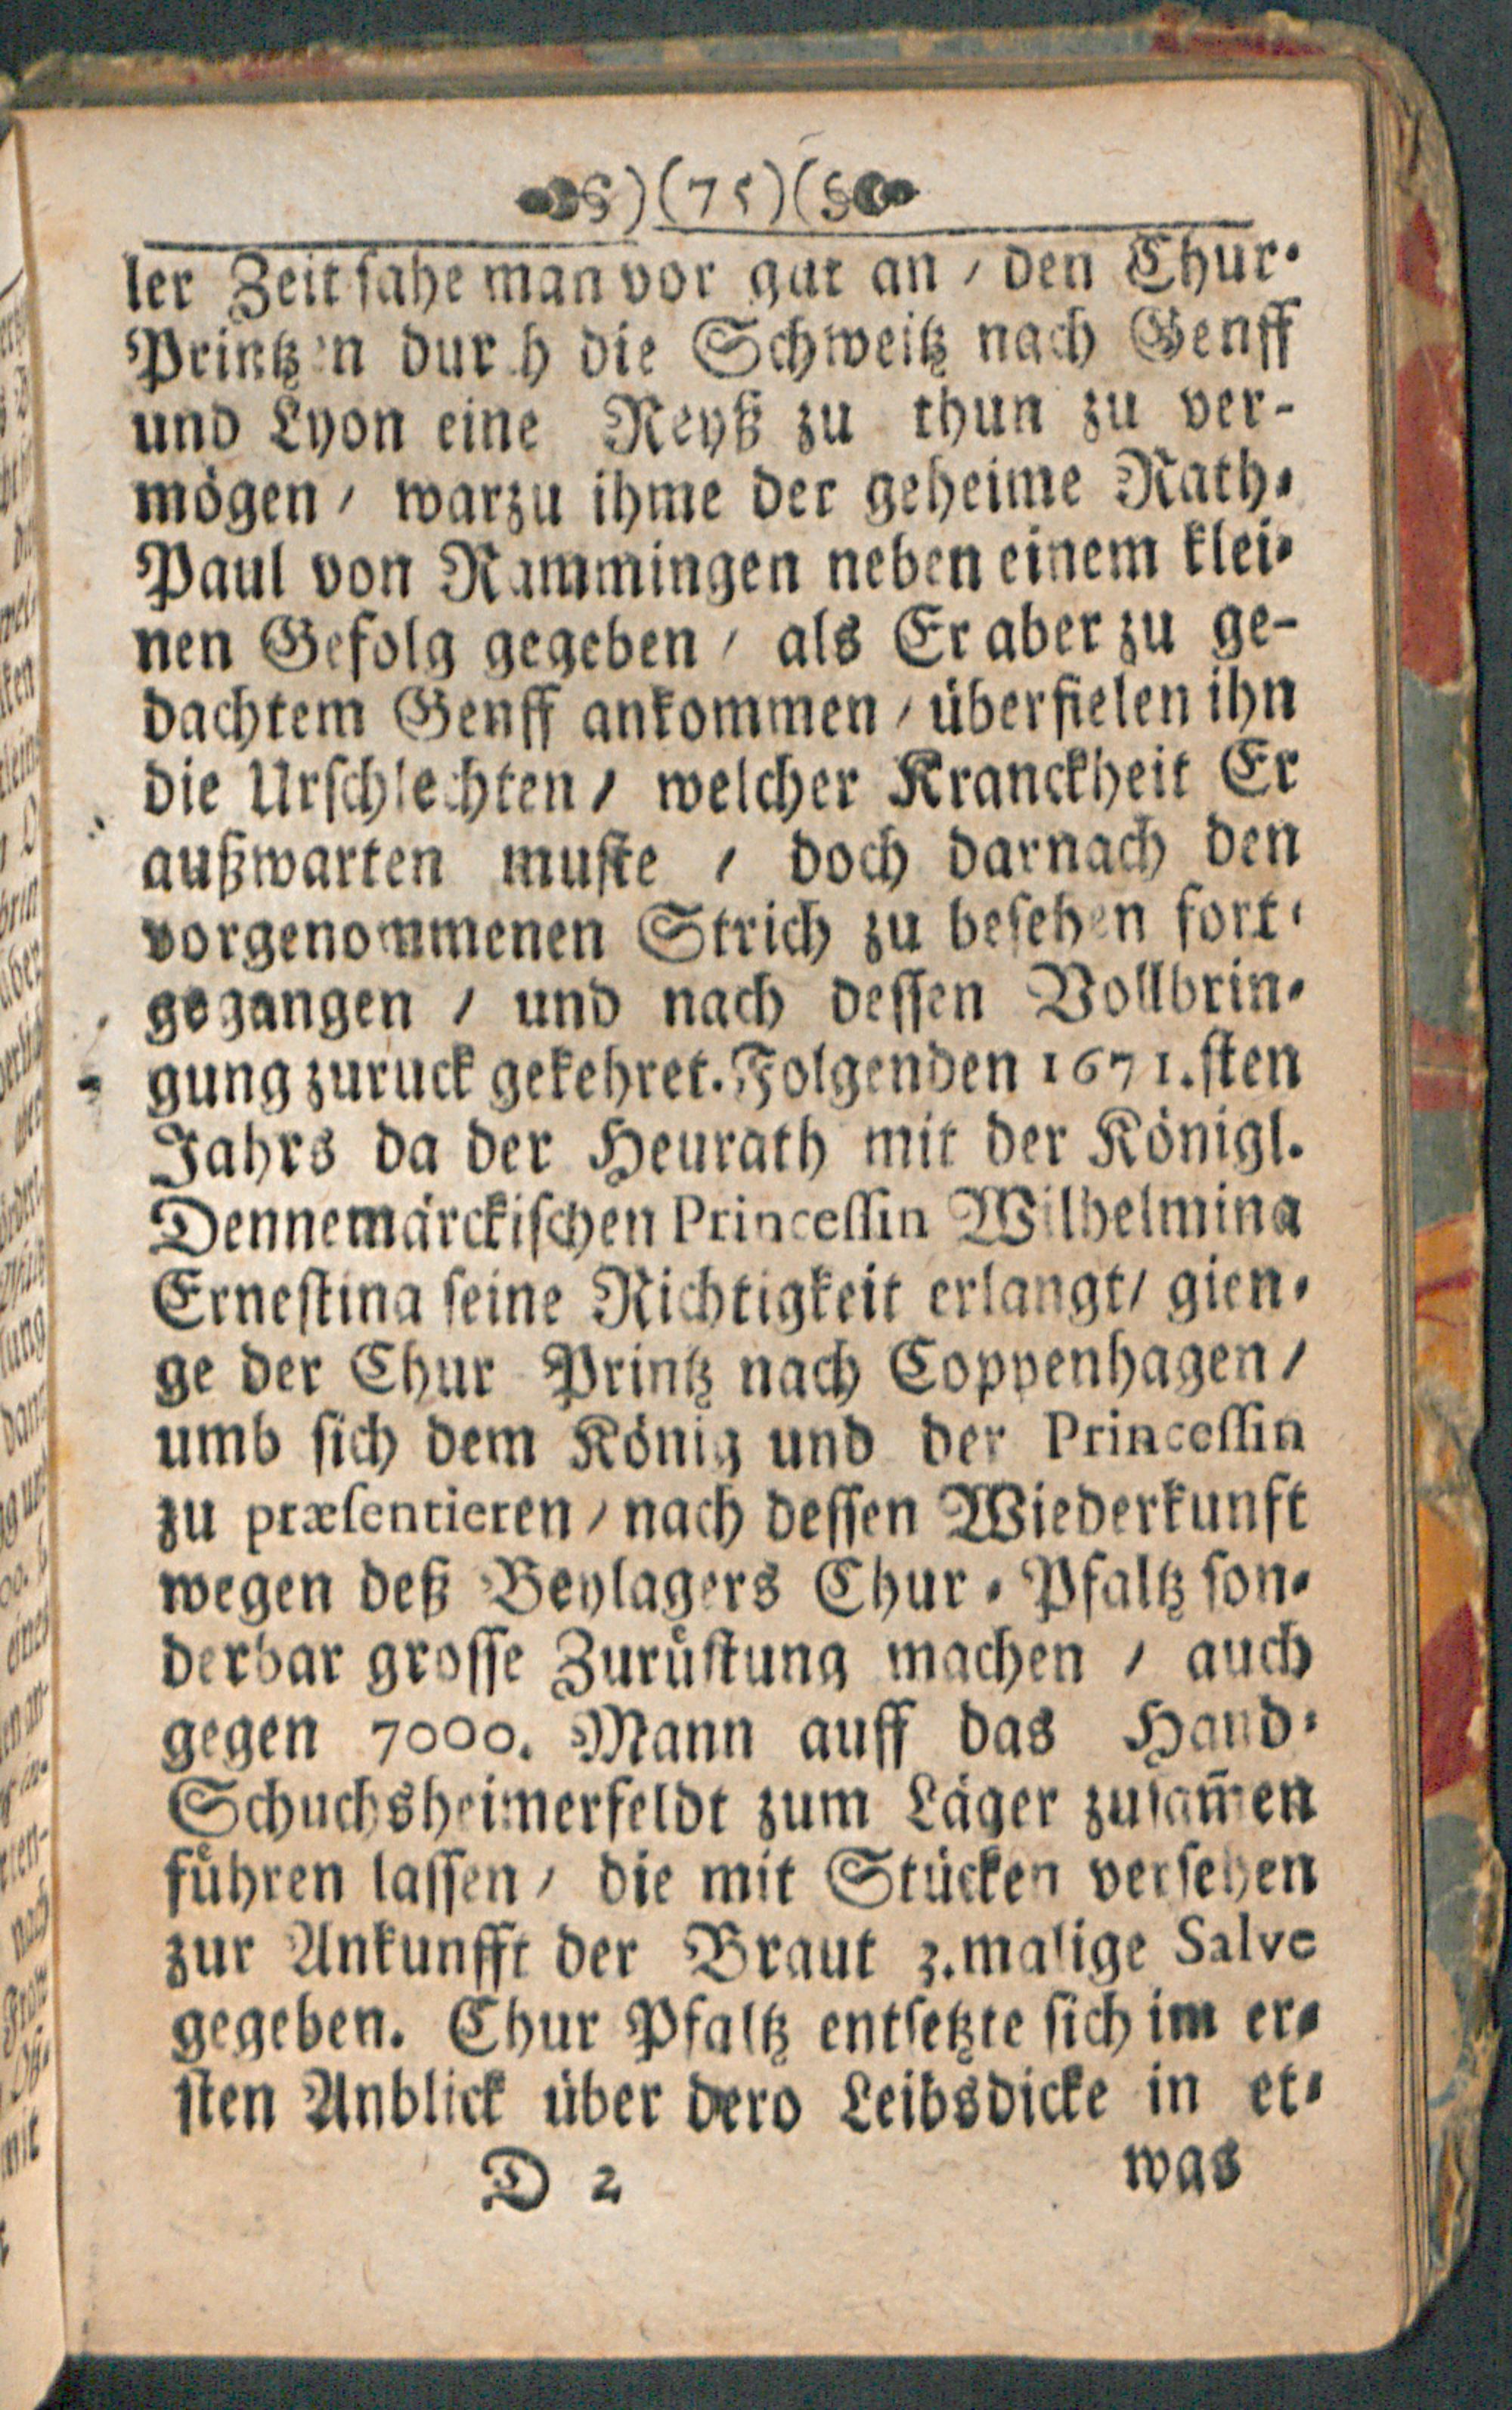 )(75)(
ler Zeit sahe man vor gut an / den Chur-
Printzen durch die Schweitz nach Genff
und Lyon eine Reyß zu thun zu ver-
mögen / warzu ihme der geheime Rath-
Paul von Rammingen neben einem klei-
nen Gefolg gegeben / als Er aber zu ge-
dachtem Genff ankommen / überfielen ihn
die Urschlechten / welcher Kranckheit Er
außwarten muste / doch darnach den
vorgenommenen Strich zu besehen fort-
gegangen / und nach dessen Vollbrin-
gung zuruck gekehret. Folgenden 1671.sten
Jahrs da der Heurath mit der Königl.
Dennemärckischen Princessin Wilhelmina
Ernestina seine Richtigkeit erlangt / gien-
ge der Chur Printz nach Coppenhagen /
umb sich dem König und der Princessin
zu præsentieren / nach dessen Wiederkunft
wegen deß Beylagers Chur-Pfaltz son-
derbar grosse Zurüstung machen / auch
gegen 7000. Mann auff das Hand-
Schuchsheimerfeldt zum Läger zusam̄en
führen lassen / die mit Stücken versehen
zur Ankunfft der Braut 3.malige Salve
gegeben. Chur Pfaltz entsetzte sich im er-
sten Anblick über dero Leibsdicke in et-
D 2 was